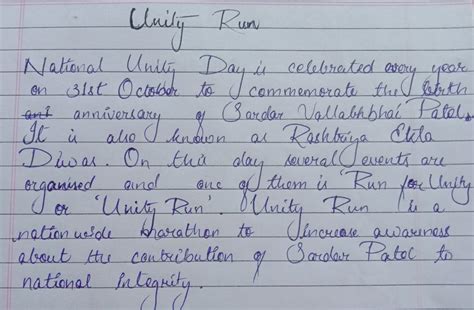 Unity Run
National Unity Day is celebrated every year
on 31st October to commemorate the birth
anniversary of Sardar Vallabhbhai Patel.
It is also known as Rashtriya Ekta
Diwas. On this day several events are
organised and one of them is 'Run for Unity
or 'Unity Run'. Unity Run is a
nationwide marathon to increase awareness
about the contribution of Sardar Patel to
national Integrity.